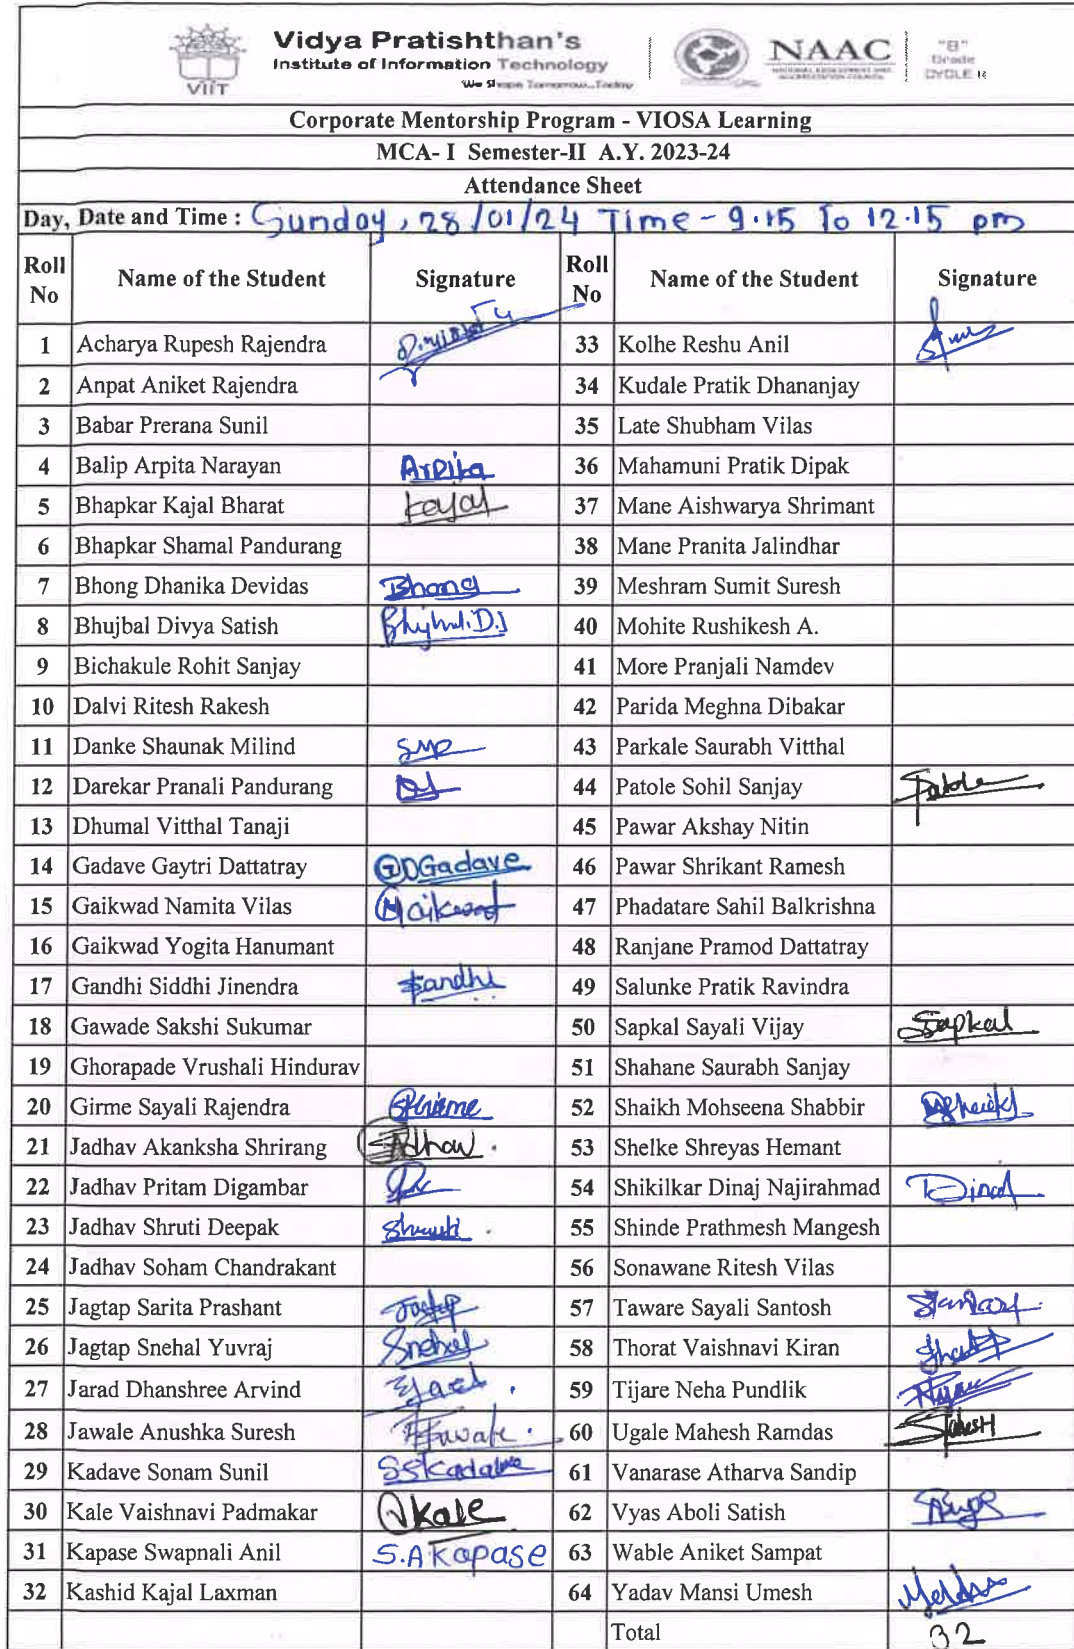 Vidya Pratishthan's
Institute of Information Technology
We Shape Tomorrow...Today
VIIT
NAAC
NATIONAL ASSESSMENT AND
ACCREDITATION COUNCIL
"B"
Grade
CYCLE II
Corporate Mentorship Program - VIOSA Learning
MCA- I Semester-II A.Y. 2023-24
Attendance Sheet
Day, Date and Time : Sunday, 28/01/24 Time - 9.15 To 12.15 pm
Roll No Name of the Student Signature Roll No Name of the Student Signature
1 Acharya Rupesh Rajendra 33 Kolhe Reshu Anil
2 Anpat Aniket Rajendra 34 Kudale Pratik Dhananjay
3 Babar Prerana Sunil 35 Late Shubham Vilas
4 Balip Arpita Narayan Arpita 36 Mahamuni Pratik Dipak
5 Bhapkar Kajal Bharat Kajal 37 Mane Aishwarya Shrimant
6 Bhapkar Shamal Pandurang 38 Mane Pranita Jalindhar
7 Bhong Dhanika Devidas Bhong 39 Meshram Sumit Suresh
8 Bhujbal Divya Satish 40 Mohite Rushikesh A.
9 Bichakule Rohit Sanjay 41 More Pranjali Namdev
10 Dalvi Ritesh Rakesh 42 Parida Meghna Dibakar
11 Danke Shaunak Milind 43 Parkale Saurabh Vitthal
12 Darekar Pranali Pandurang 44 Patole Sohil Sanjay Patole
13 Dhumal Vitthal Tanaji 45 Pawar Akshay Nitin
14 Gadave Gaytri Dattatray GDGadave 46 Pawar Shrikant Ramesh
15 Gaikwad Namita Vilas 47 Phadatare Sahil Balkrishna
16 Gaikwad Yogita Hanumant 48 Ranjane Pramod Dattatray
17 Gandhi Siddhi Jinendra Gandhi 49 Salunke Pratik Ravindra
18 Gawade Sakshi Sukumar 50 Sapkal Sayali Vijay Sapkal
19 Ghorapade Vrushali Hindurav 51 Shahane Saurabh Sanjay
20 Girme Sayali Rajendra 52 Shaikh Mohseena Shabbir
21 Jadhav Akanksha Shrirang 53 Shelke Shreyas Hemant
22 Jadhav Pritam Digambar 54 Shikilkar Dinaj Najirahmad
23 Jadhav Shruti Deepak Shruti 55 Shinde Prathmesh Mangesh
24 Jadhav Soham Chandrakant 56 Sonawane Ritesh Vilas
25 Jagtap Sarita Prashant Jagtap 57 Taware Sayali Santosh
26 Jagtap Snehal Yuvraj Snehal 58 Thorat Vaishnavi Kiran
27 Jarad Dhanshree Arvind 59 Tijare Neha Pundlik
28 Jawale Anushka Suresh 60 Ugale Mahesh Ramdas
29 Kadave Sonam Sunil SSKadave 61 Vanarase Atharva Sandip
30 Kale Vaishnavi Padmakar Vkale 62 Vyas Aboli Satish
31 Kapase Swapnali Anil S.A Kapase 63 Wable Aniket Sampat
32 Kashid Kajal Laxman 64 Yadav Mansi Umesh
Total 32